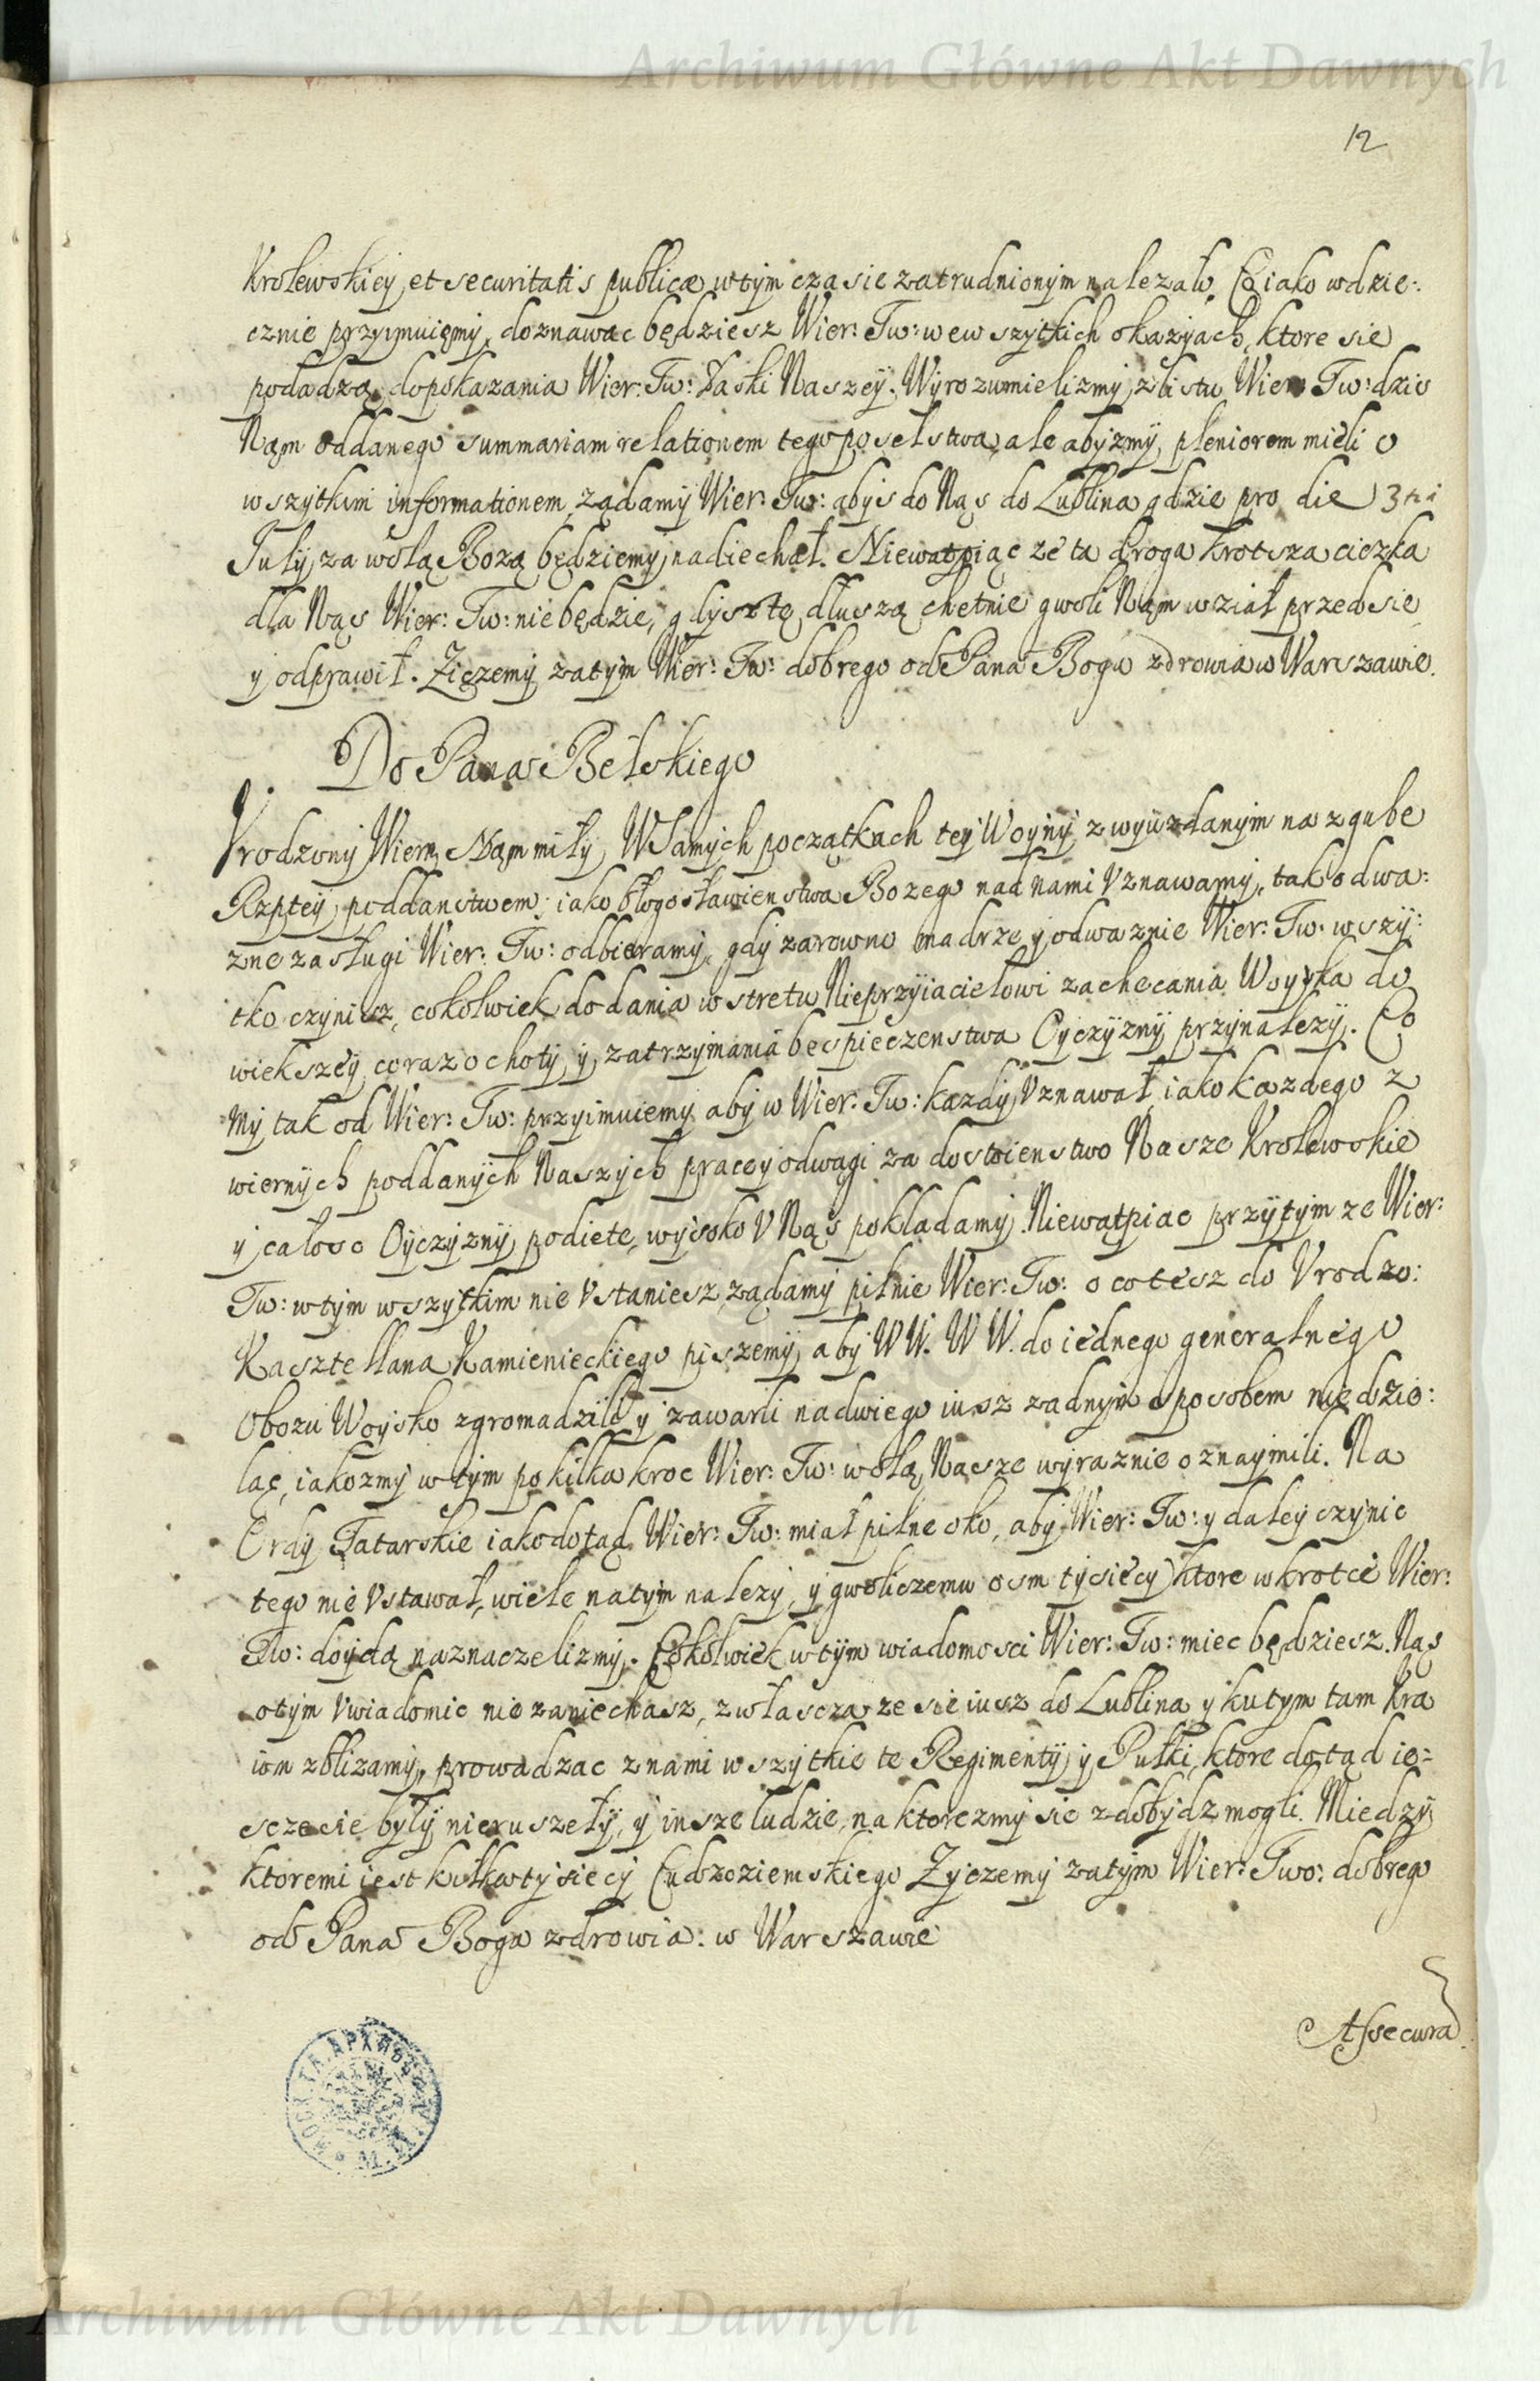 Archiwum Główne Akt Dawnych
12
Krolewskiey, et securitatis publicæ w tym czasie zatrudnionym nalezało. Co iako wdzie:
cznie przyimuięmy, doznawac będziesz Wier: Tw: we wszytkich okazyach, ktore się
podadzą, do pokazania Wier: Tw: Łaski Naszey. Wyrozumielizmy z listu Wier: Tw: dzis
Nąm oddanego summariam relationem tego poselstwa, ale abyzmy pleniorem mieli o
wszytkim informationem, ządamy Wier: Tw: abys do Nąs do Lublina gdzie pro die 3tia
July za wolą Bozą będziemy, nadiechał. Niewątpiąc ze ta droga krotsza cięzka
dla Nąs Wier: Tw: nie będzie, gdysz tę dłuszą chętnie gwoli Nąm wziął przed się
y odprawił. Zięzemy zatym Wier: Tw: dobrego od Pana Boga zdrowia w Warszawie.
Do Pana Bełskiego
Vrodzony Wiern. Nąm miły, W samych początkach tey Woyny z wyuzdanym na zgubę
Rzptey poddanstwem, iako błogosławienstwa Bozego nad nami Vznawamy, tak odwa:
zne zasługi Wier: Tw: odbieramy, gdy zarowno mądrze y odwaznie Wier: Tw: wszy:
tko czynisz, cokolwiek do dania wstrętu Nieprzyiacielowi zachęcania Woyska do
większey coraz ochoty, y zatrzymania bespieczenstwa Oyczyzny przynalezy. Co
my tak od Wier: Tw: przyimuiemy aby w Wier: Tw: kazdy Vznawał, iako kazdego z
wiernych poddanych Naszych pracę y odwagi za dostoienstwo Nasze Krolewskie
y całosc Oyczyzny podięte, wysoko V Nąs pokladamy. Niewątpiąc przytym ze Wier:
Tw: w tym wszytkim nie Vstaniesz, ządamy pilnie Wier: Tw: o co tesz do Vrodzo:
Kasztellana Kamienieckiego piszemy, aby WW. WW. do iednego generalnego
obozu Woysko zgromadzili y zawarli na dwie go iusz zadnym sposobem nie dzie:
ląc, iakozmy w tym po kilkakroc Wier: Tw: wolą Nasze wyraznie oznaymili. Na
Ordy Tatarskie iako dotąd Wier: Tw: miał pilne oko, aby Wier: Tw: y daley czynic
tego nie Vstawał, wiele na tym nalezy, y gwoli czemu osm tysięcy ktore wkrotce Wier:
Tw: doydą naznaczelizmy. Cokolwiek w tym wiadomosci Wier: Tw: miec będziesz Nąs
o tym Vwiadomic nie zaniechasz, zwłascza ze się iusz do Lublina y ku tym tam kra
iom zblizamy, prowadząc z nami wszytkie te Regimenty y Pułki, ktore dotąd ie:
scze się były nie ruszeły, y insze ludzie, na ktorezmy się zdobydz mogli. Miedzy
ktoremi iest kilka tysięcy Cudzoziemskiego Zyczemy zatym Wier: Two: dobrego
od Pana Boga zdrowia: w Warszawie
Assecura
Archiwum Główne Akt Dawnych